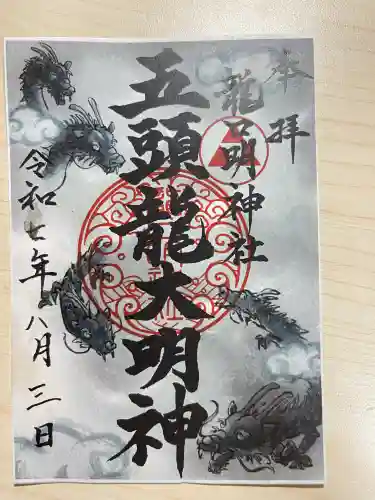 奉拝
龍口明神社
五頭龍大明神
令和七年八月三日